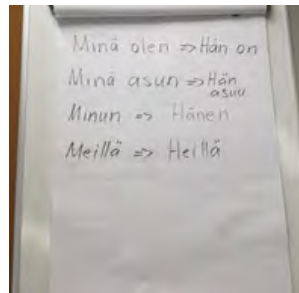 Minä olen => Hän on
Minä asun => Hän
asuu
Minun => Hänen
Meillä => Heillä